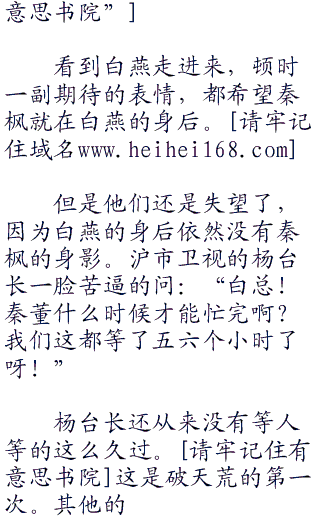 意思书院”]
看到白燕走进来，顿时
一副期待的表情，都希望秦
枫就在白燕的身后。[请牢记
住域名www.heihei168.com]
但是他们还是失望了，
因为白燕的身后依然没有秦
枫的身影。沪市卫视的杨台
长一脸苦逼的问：“白总！
秦董什么时候才能忙完啊？
我们这都等了五六个小时了
呀！”
杨台长还从来没有等人
等的这么久过。[请牢记住有
意思书院]这是破天荒的第一
次。其他的